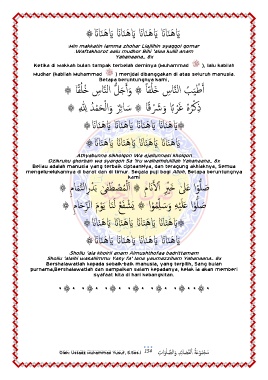 يَاهَنَانَا يَاهَنَانَا يَاهَنَانَا يَاهَنَانَا
Min makkatin lamma zhohar Liajlihin syaqqol qomar
Waftakhorot aalu mudhor Bihi 'alaa kulil anam
Yahanaana, 8x
Ketika di Makkah bulan tampak terbelah demi­nya (Muhammad ﷺ), lalu kabilah
Mudhar (kabilah Muhammad ﷺ) menjadi dibanggakan di atas seluruh manusia.
Betapa beruntungnya kami,
أَطْيَبُ النَّاسِ خَلْقًا ۞ وَأَجَلُّ النَّاسِ خُلُقًا ۞
ذِكْرُهُ غَرْبًا وَشَرْقًا ۞ سَائِرٌ وَالْحَمْدُ لِلَّهِ ۞
يَاهَنَانَا يَاهَنَانَا يَاهَنَانَا يَاهَنَانَا ۞
۞ يَاهَنَانَا يَاهَنَانَا يَاهَنَانَا يَاهَنَانَا
Athyabunna skholqon Wa ajallunnasi kholqon
Dzikruhu ghorban wa syarqon Sa 'iru walhamdulillah Yahanaana, 8x
Beliau adalah manusia yang terbaik ciptaannya, dan teragung akhlaknya, Semua
mengelu-elukannya di barat dan di timur. Segala puji bagi Alloh. Betapa beruntungnya
kami
صَلُّوا عَلَى خَيْرِ الْأَنَامِ ۞ الْمُصْطَفَى بَدْرِ التَّمَامِ ۞
صَلُّوا عَلَيْهِ وَسَلِّمُوا ۞ يَشْفَعْ لَنَا يَوْمَ الزِّحَامِ ۞
يَاهَنَانَا يَاهَنَانَا يَاهَنَانَا يَاهَنَانَا ۞
۞ يَاهَنَانَا يَاهَنَانَا يَاهَنَانَا يَاهَنَانَا
Shollu 'ala khoiril anam Almushthofaa badrittamam
Shollu 'alaihi wasallimuu Yasy fa' lana yaumazziham Yahanaana, 8x
Bershalawatlah kepada sebaik-baik manusia, yang terpilih, Sang bulan
purnama,Bershalawatlah dan sampaikan salam kepadanya, kelak ia akan memberi
syafaat kita di hari kebangkitan.
Oleh: Ustadz Muhammad Yusuf, S.Sos.I
254